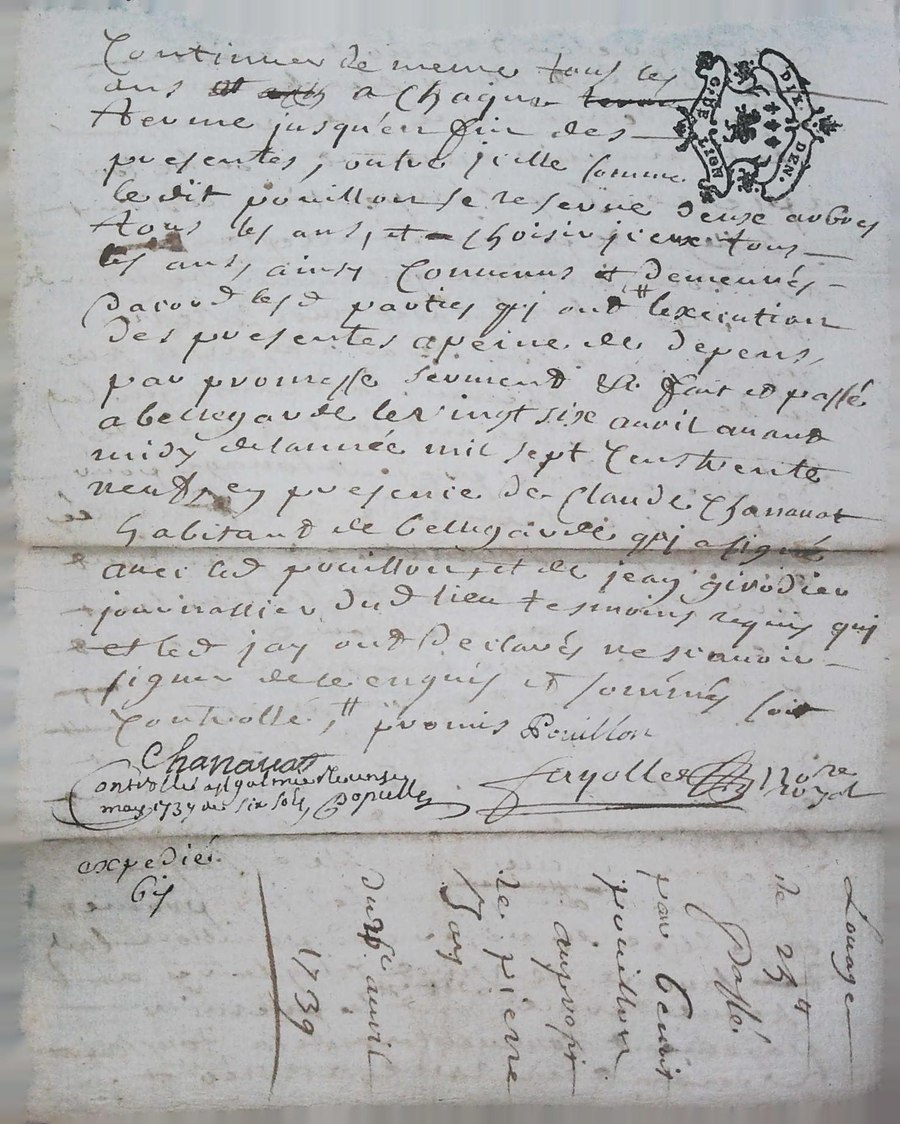 Continuer de meme tous les
ans et aux a chaque
terme jusqu'en fin des
presentes, outre jcelle somme
le dit pouillon se reserve deux arbres
tous les ans, et choisir jceux tous
les ans, ainsy convenus et demeurés
dacord lesd parties qui ont lexecution
des presentes apeine de depens,
par promesse serment &c fait et passé
a bellegarde le vingt six avril avant
midy delannée mil sept cens trente
neuf, en presence de Claude Chanavat
habitant de bellegarde qui a signé
avec led pouillon, et de jean girodier
journallier dud lieu tesmoins requis qui
et led jay ont declarés ne scavoir
signer de ce enquis et sommés soit
controllé, promis Pouillon
Chanavat
Controllé a st galmier le unze
may 1739 six sols
fayolle Nore
royal
expedié
GEN. DE LION
DIX. DEN.
Louage
de 25 ll
Passé
par benoit
pouillon
auproffit
de pierre
Jay
du 26e avril
1739